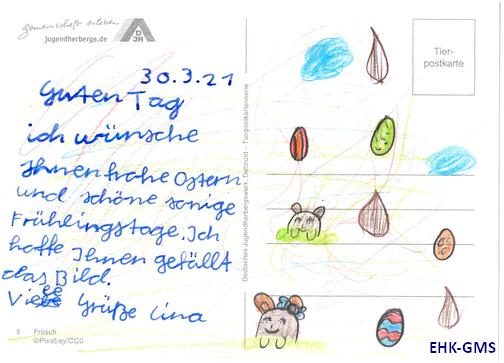 gemeinschaft erleben
jugendherberge.de
DJH
30.3.21
Guten Tag
ich wünsche
Ihnen frohe Ostern
und schöne sonige
Frühlingstage. Ich
hoffe Ihnen gefällt
das Bild.
Viele Grüße Lina
5 Frosch
©Pixabay/CC0
Deutsches Jugendherbergswerk, Detmold - Tierpostkartenserie
Tier-
postkarte
EHK-GMS